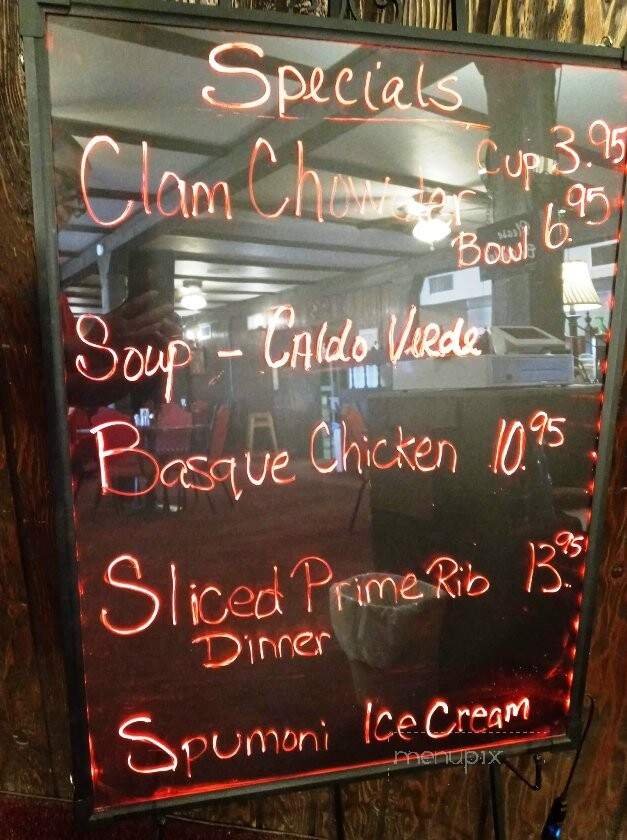 Specials
Clam Chowder Cup 3.95
Bowl 6.95
Soup - Caldo Verde
Basque Chicken 10.95
Sliced Prime Rib 13.95
Dinner
Spumoni Ice Cream
menupix